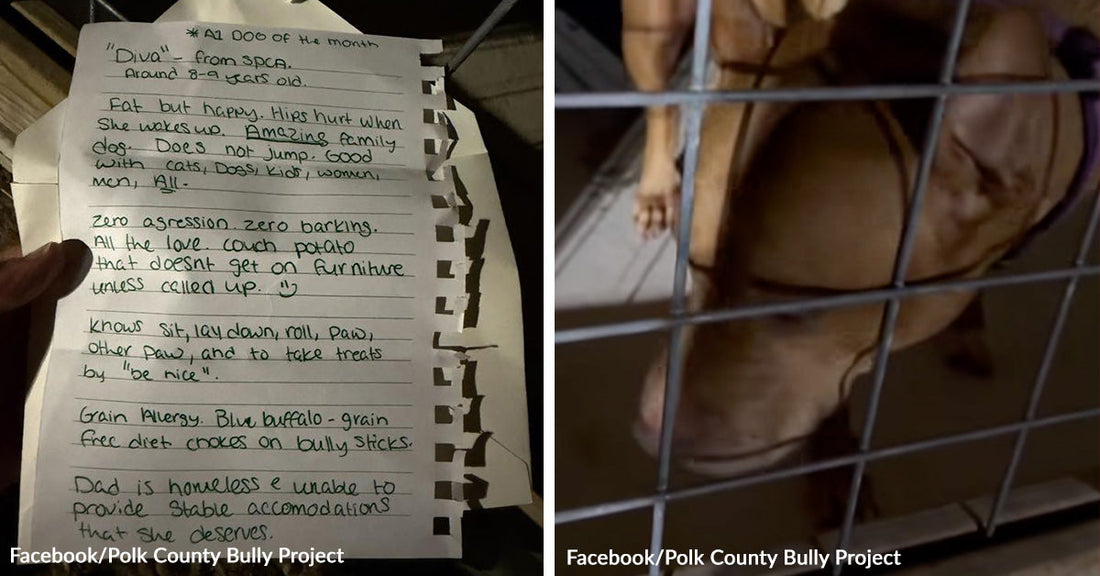 * A1 DOG of the month
"Diva" - from SPCA.
Around 8-9 years old.
Fat but happy. Hips hurt when
She wakes up. Amazing family
dog. Does not jump. Good
with cats, Dogs, Kids, women,
men, All.
zero agression. zero barking.
All the love couch potato
that doesnt get on furniture
unless called up.
knows sit, lay down, roll, paw,
other paw, and to take treats
by "be nice".
Grain Allergy. Blue buffalo - grain
free diet chokes on bully sticks.
Dad is homeless & unable to
provide stable accomodations
that she deserves.
Facebook/Polk County Bully Project
Facebook/Polk County Bully Project